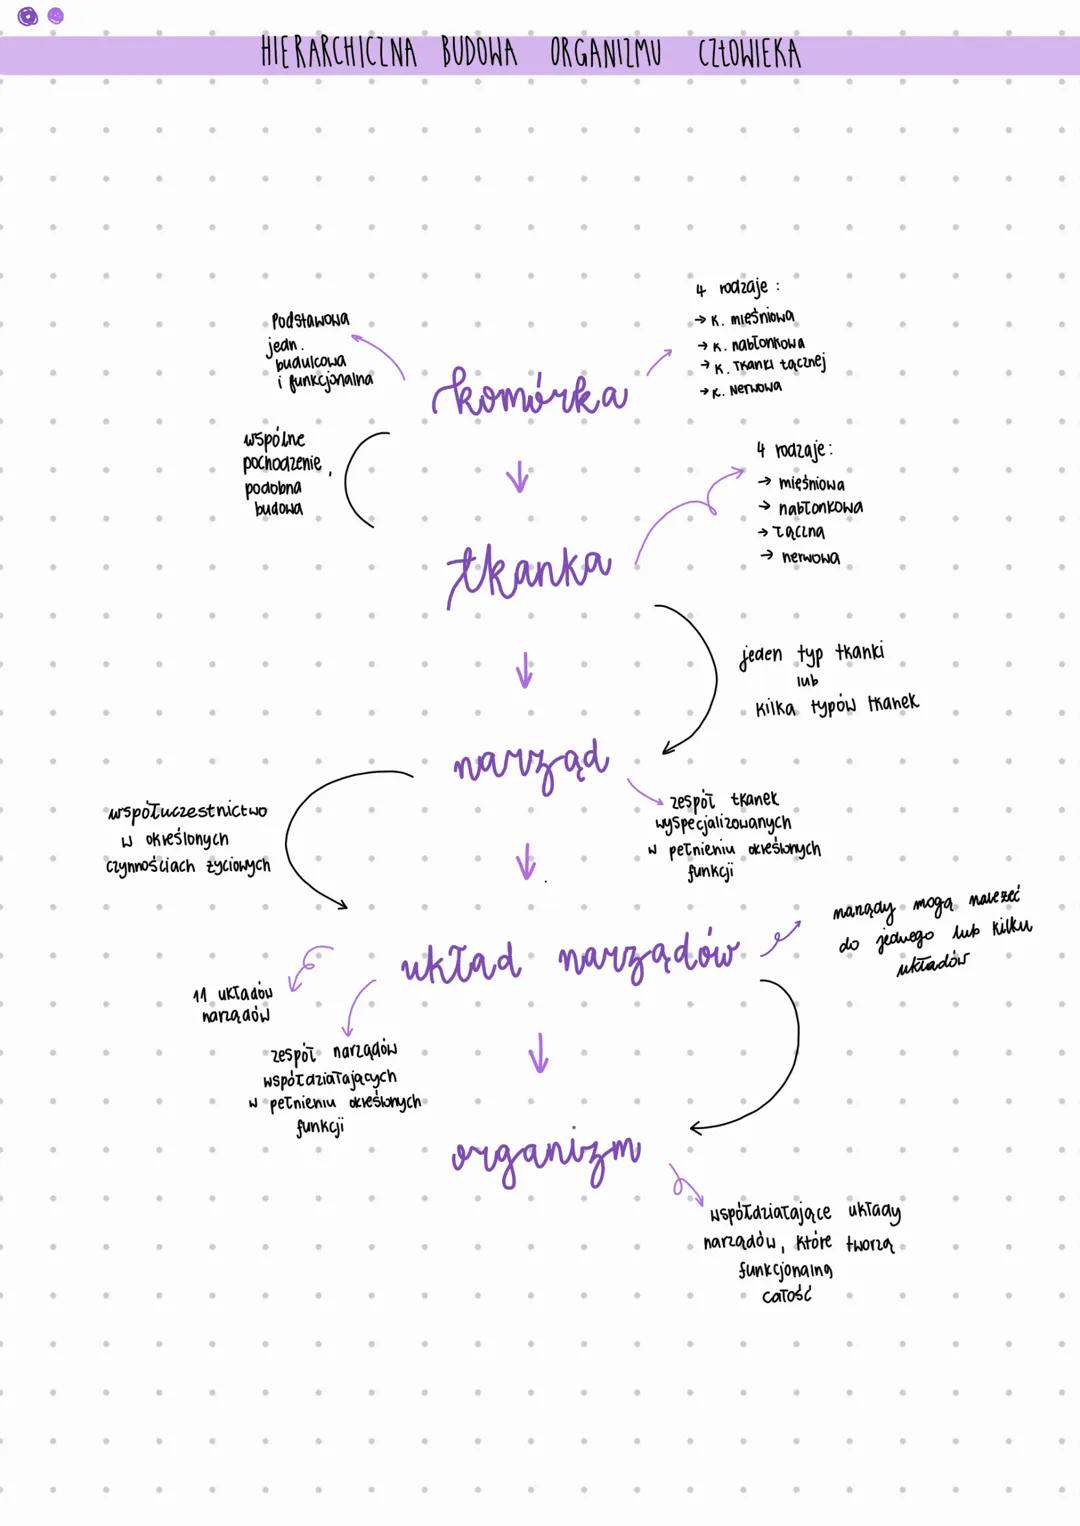 HIERARCHICZNA BUDOWA ORGANIZMU CZŁOWIEKA
4 rodzaje :
→ k. mięśniowa
→ k. nabłonkowa
→ k. tkanki łącznej
→ k. nerwowa
Podstawowa
jedn.
budulcowa
i funkcjonalna
komórka
wspólne
pochodzenie,
podobna
budowa
↓
4 rodzaje:
→ mięśniowa
→ nabłonkowa
→ łączna
→ nerwowa
tkanka
jeden typ tkanki
lub
kilka typów tkanek
↓
narząd
zespół tkanek
wyspecjalizowanych
w pełnieniu określonych
funkcji
współuczestnictwo
w określonych
czynnościach życiowych
↓
narządy mogą należeć
do jednego lub kilku
układów
układ narządów
11 układów
narządów
zespół narządów
współdziałających
w pełnieniu określonych
funkcji
↓
organizm
współdziałające układy
narządów, które tworzą
funkcjonalną
całość